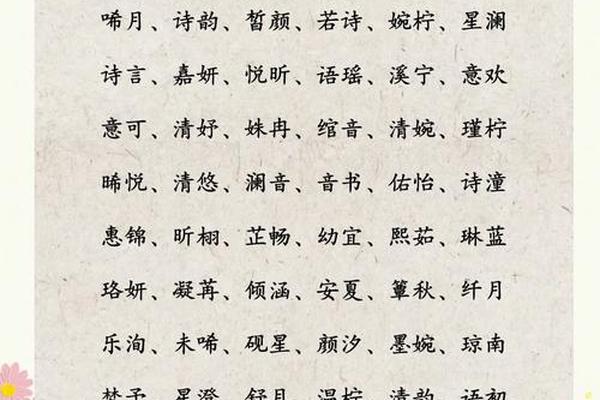 唏月、诗韵、皙颜、若诗、婉柠、星澜
诗言、嘉妍、悦昕、语瑶、溪宁、意欢
意可、清妤、姝冉、绾音、清婉、瑾柠
晞悦、清悠、澜音、音书、佑怡、诗潼
惠锦、昕栩、芷畅、幼宜、熙茹、琳蓝
珞妍、凝苒、倾涵、安夏、簟秋、纤月
乐洵、未唏、砚星、颜汐、墨婉、琼南
梦予、星澄、舒月、温柠、清韵、语初